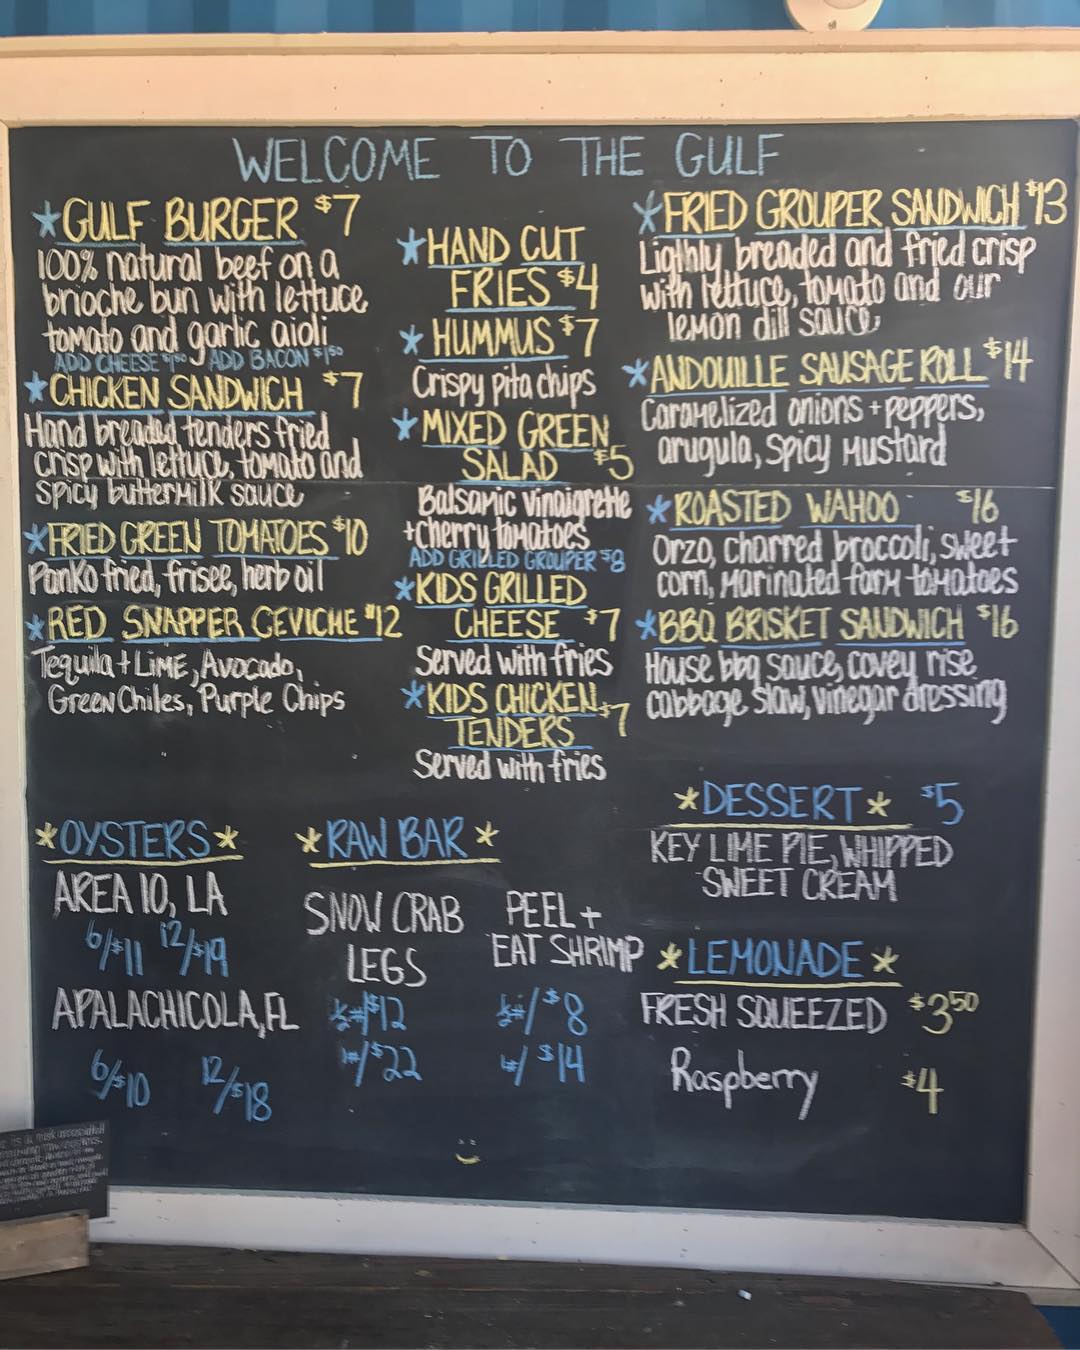 WELCOME TO THE GULF
*GULF BURGER $7
100% natural beef on a
brioche bun with lettuce
tomato and garlic aioli
ADD CHEESE $1.50 ADD BACON $1.50
*CHICKEN SANDWICH $7
Hand breaded tenders fried
crisp with lettuce, tomato and
spicy buttermilk sauce
*FRIED GREEN TOMATOES $10
Panko fried, frisee, herb oil
*RED SNAPPER CEVICHE $12
Tequila + Lime, Avocado,
Green Chiles, Purple Chips
*HAND CUT
FRIES $4
*HUMMUS $7
Crispy pita chips
*MIXED GREEN
SALAD $5
Balsamic vinaigrette
+cherry tomatoes
ADD GRILLED GROUPER $8
*KIDS GRILLED
CHEESE $7
Served with fries
*KIDS CHICKEN
TENDERS $7
Served with fries
*FRIED GROUPER SANDWICH $13
Ligthly breaded and fried crisp
with lettuce, tomato and our
lemon dill sauce
*ANDOUILLE SAUSAGE ROLL $14
Caramelized onions + peppers,
arugula, spicy mustard
*ROASTED WAHOO $16
Orzo, charred broccoli, sweet
corn, marinated farm tomatoes
*BBQ BRISKET SANDWICH $16
House bbq sauce, covey rise
cabbage slaw, vinegar dressing
*OYSTERS*
AREA 10, LA
6/$11 12/$19
APALACHICOLA, FL
6/$10 12/$18
*RAW BAR*
SNOW CRAB
LEGS
½#/$12
1#/$22
PEEL +
EAT SHRIMP
½#/$8
1#/$14
*DESSERT* $5
KEY LIME PIE, WHIPPED
SWEET CREAM
*LEMONADE*
FRESH SQUEEZED $3.50
Raspberry $4